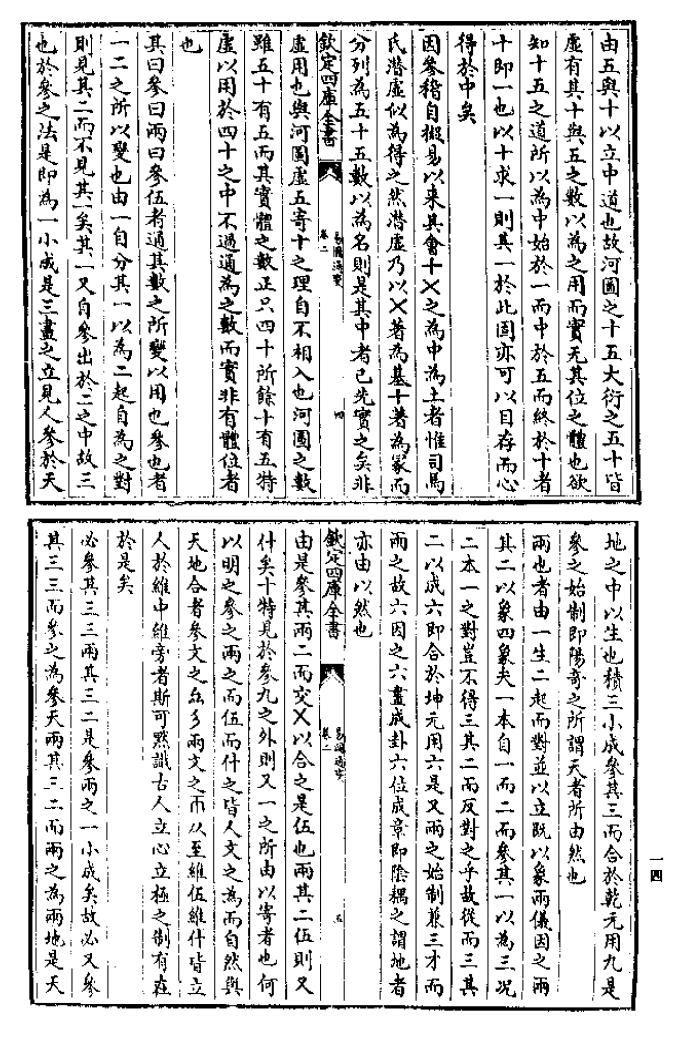 由五與十以立中道也故河圖之十五大衍之五十皆
虛有其十與五之數以為之用而實无其位之體也欲
知十五之道所以為中始於一而中於五而終於十者
十即一也以十求一則其一於此固亦可以目存而心
得於中矣
因參稽自擬易以来其會十㐅之為中為土者惟司馬
氏潛虛似為得之然潛虛乃以㐅著為基十著為冡而
分列為五十五數以為名則是其中者已先實之矣非
欽定四庫全書
易圖通變
卷二
四
虛用也與河圖虛五寄十之理自不相入也河圖之數
雖五十有五而其實體之數正只四十所餘十有五特
虛以用於四十之中不過通為之數而實非有體位者
也
其曰參曰兩曰參伍者通其數之所變以用也參也者
一二之所以變也由一自分其一以為二起自為之對
則見其二而不見其一矣其一又自參出於二之中故三
也於參之法是即為一小成是三畫之立見人參於天
地之中以生也積三小成參其三而合於乾元用九是
參之始制即陽奇之所謂天者所由然也
兩也者由一生二起而對並以立既以象兩儀因之兩
其二以象四象夫一本自一而二而參其一以為三况
二本一之對豈不得三其二而反對之乎故從而三其
二以成六即合於坤元用六是又兩之始制兼三才而
兩之故六因之六畫成卦六位成章即陰耦之謂地者
亦由以然也
欽定四庫全書
卷二
五
由是參其兩二而交㐅以合之是伍也兩其二伍則又
什矣十特見於參九之外則又一之所由以寄者也何
以明之參之兩之而伍而什之皆人文之為而自然與
天地合者參文之兩文之从至維伍維什皆立
人於維中維旁者斯可黙識古人立心立極之制有在
於是矣
必參其三三兩其三二是參兩之一小成矣故必又參
其三三而參之為參天兩其三二而兩之為兩地是天
一四